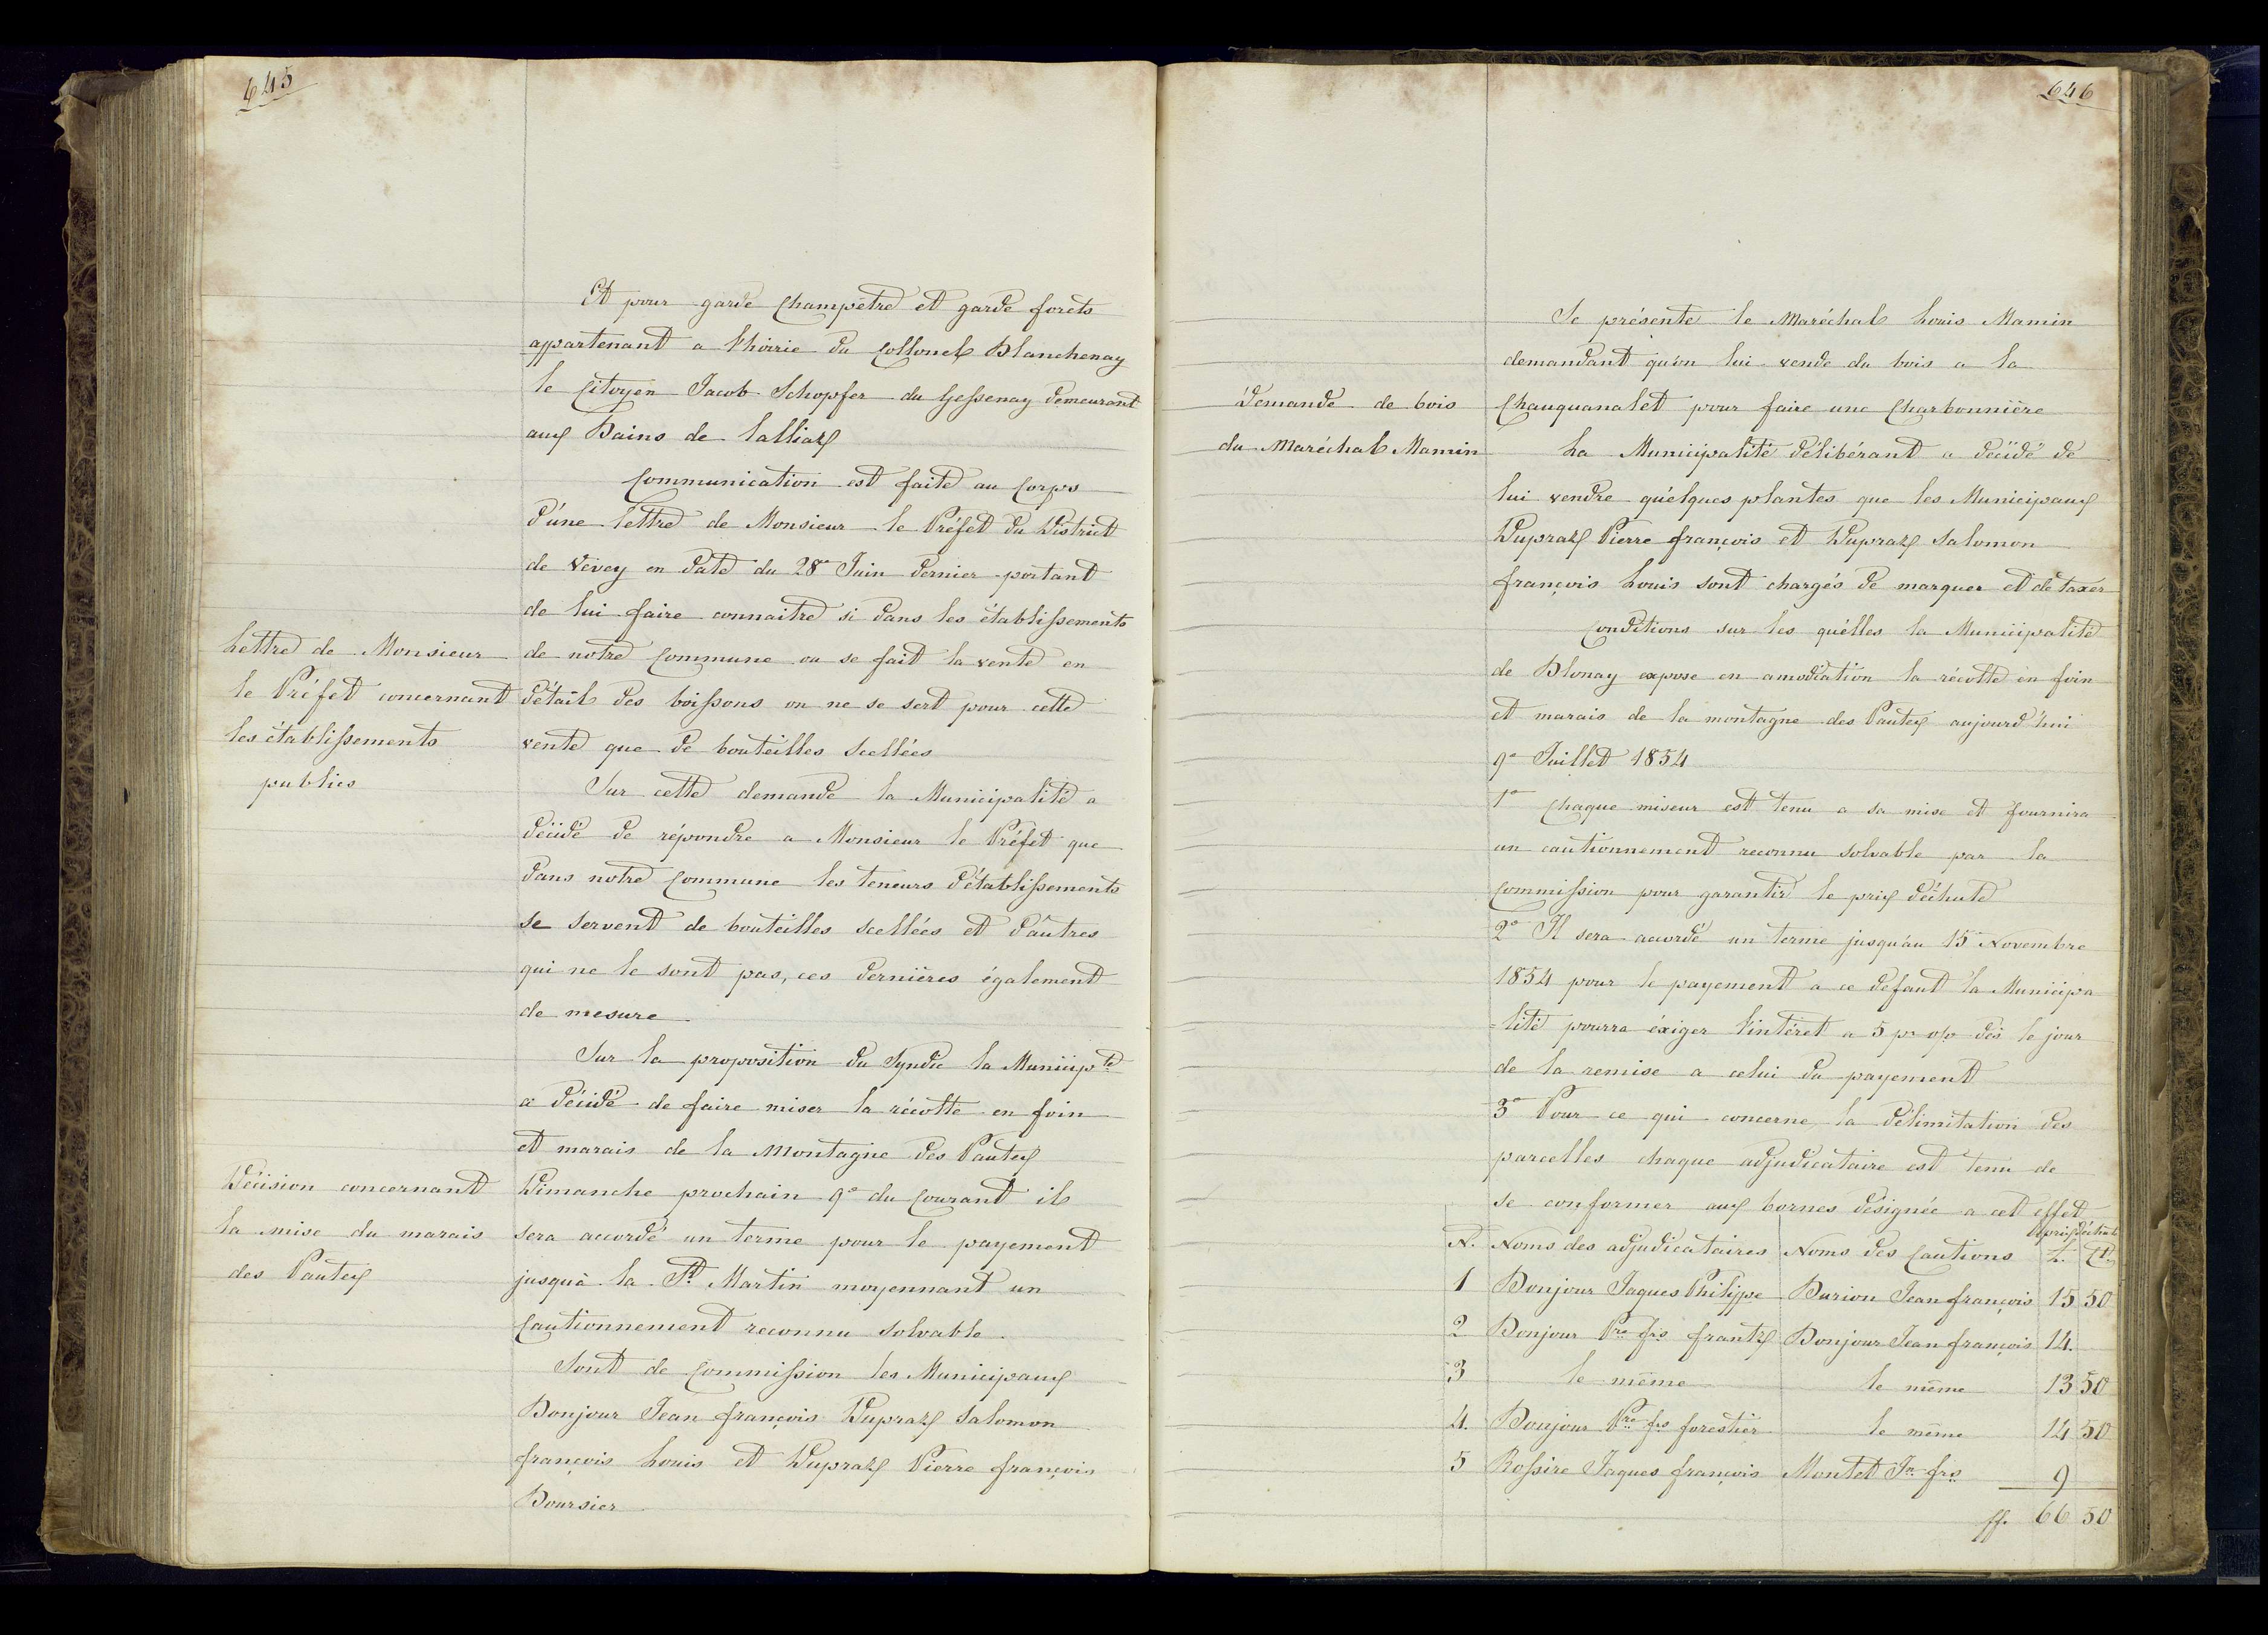 645
Et pour garde Champêtre et garde forêts
appartenant a l'hoirie du Collonel Blanchenay
le Citoyen Jacob Schopfer du Gessenay demeurant
aux Bains de Lalliaz
Communication est faite au Corps
d'une lettre de Monsieur le Préfet du District
de Vevey en date du 28e Juin dernier portant
de lui faire connaitre si dans les établissements
Lettre de Monsieur
le Préfet concernant
les établissements
publics
de notre Commune ou se fait la vente en
détail des boissons on ne se sert pour cette
vente que de bouteilles scellées
Sur cette demande la Municipalité a
décidé de répondre a Monsieur le Préfet que
dans notre Commune les teneurs d'établissements
se servent de bouteilles scellées et d'autres
qui ne le sont pas, ces dernières également
de mesure
Sur la proposition du Syndic la Municipté
a décidé de faire miser la récolte en foin
et marais de la Montagne des Pautex
Décision concernant
la mise du marais
des Pautex
Dimanche prochain 9e du Courant il
sera accordé un terme pour le payement
jusqu'à la St Martin moyennant un
Cautionnement reconnu solvable.
Sont de Commission les Municipaux
Bonjour Jean françois Dupraz Salomon
françois Louis et Dupraz Pierre françois
Boursier
646
Se présente le Maréchal Louis Mamin
demandant qu'on lui vende du bois a la
Demande de bois
du Maréchal Mamin
Chauquanalet pour faire une Charbonnière
La Municipalité délibérant a décidé de
lui vendre quelques plantes que les Municipaux
Dupraz Pierre françois et Dupraz Salomon
françois Louis sont chargés de marquer et de taxer
Conditions sur les quelles la Municipalité
de Blonay expose en amodiation la récolte en foin
et marais de la montagne des Pautex aujourd'hui
9e Juillet 1854
1o Chaque miseur est tenu a sa mise et fournira
un cautionnement reconnu solvable par la
Commission pour garantir le prix d'échute
2o Il sera accordé un terme jusqu'au 15e Novembre
1854 pour le payement a ce defaut la Municipa
=lité pourra éxiger l'intéret a 5 pr o/o dès le jour
de la remise a celui du payement
3o Pour ce qui concerne la délimitation des
parcelles chaque adjudicataire est tenu de
se conformer aux bornes désignée a cet effet
N. Noms des adjudicataires Noms des Cautions Le prix d'échute f. Ct.
1 Bonjour Jaques Philippe Burion Jean françois 15 50
2 Bonjour Pre frs frantz Bonjour Jean françois 14.
3 le même le même 13 50
4. Bonjour Pre frs forestier le même 14 50
5 Rossire Jaques françois Montet Jn frs 9
ff. 66 50